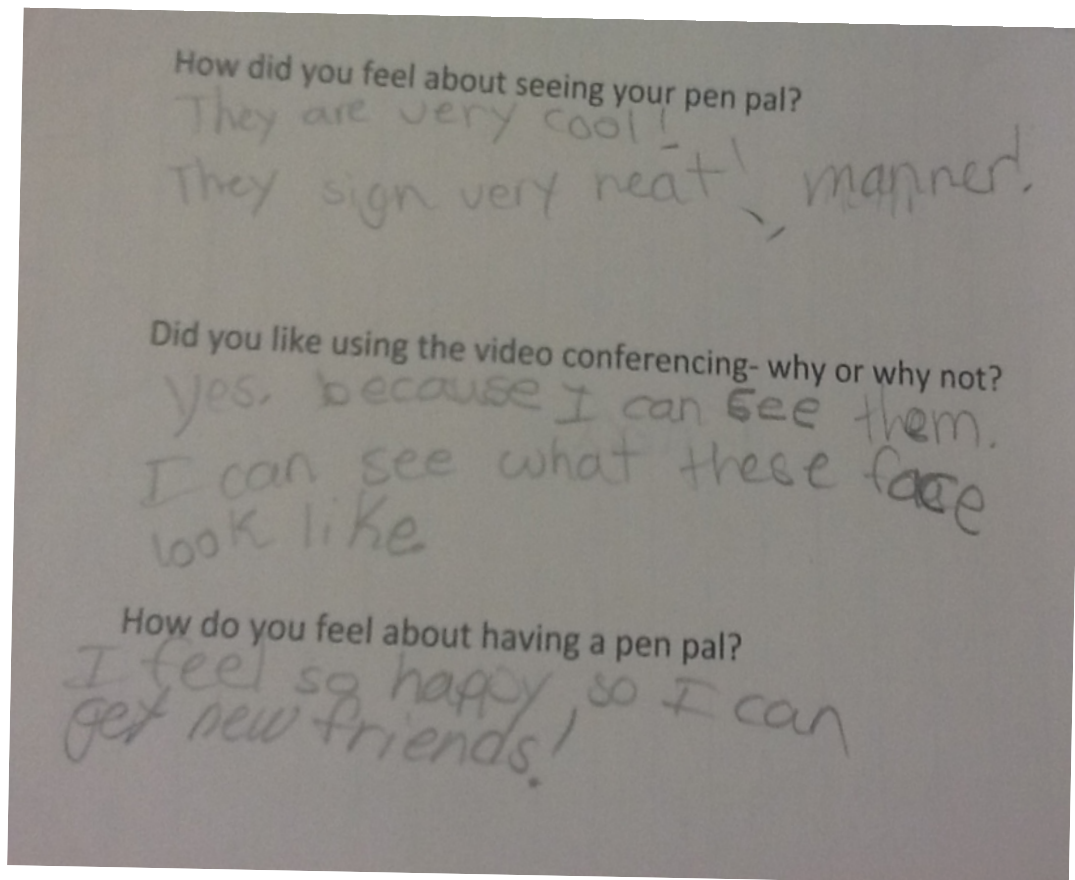 How did you feel about seeing your pen pal?
They are very cool!
They sign very neat! manner.
Did you like using the video conferencing- why or why not?
yes. because I can see them.
I can see what these face
look like
How do you feel about having a pen pal?
I feel so happy, so I can
get new friends!